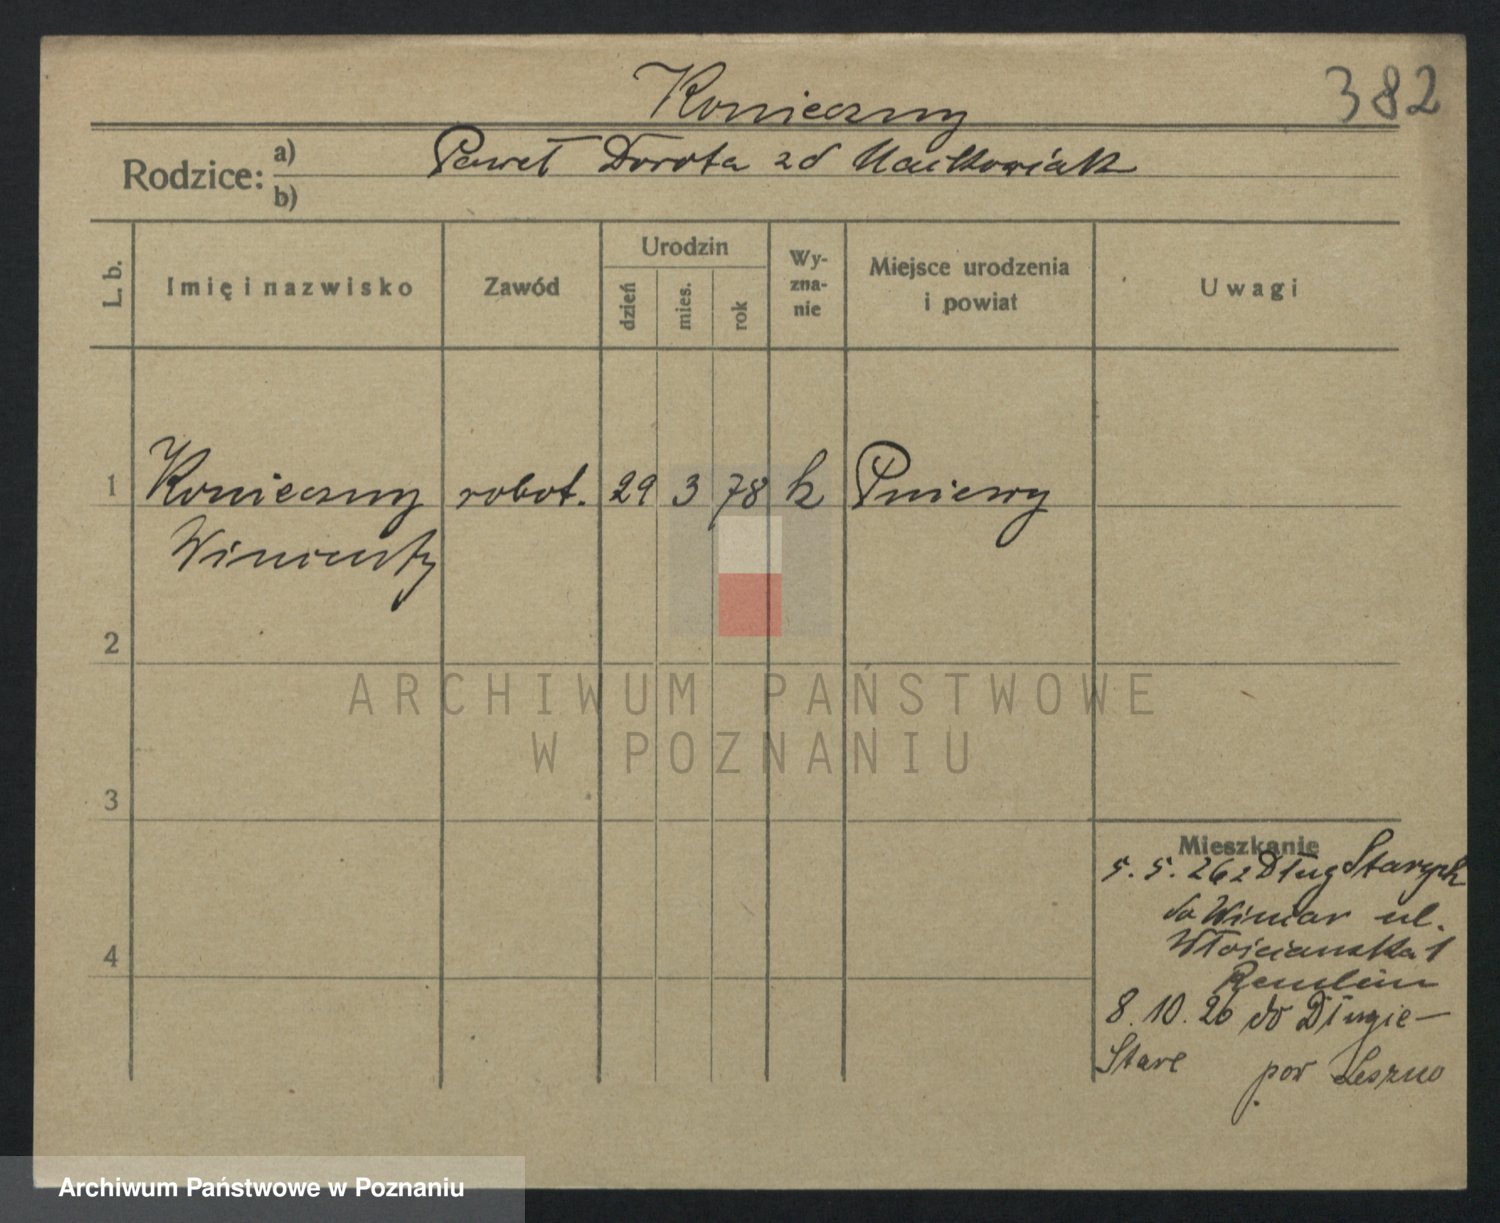 382
Konieczny
Rodzice: a) b)
Paweł Dorota zd
L. b.
Imię i nazwisko
Zawód
Urodzin
dzień
mies.
rok
Wy-
zna-
nie
Miejsce urodzenia
i powiat
Uwagi
1 Konieczny robot. 29 3 78 k Pniewy
Wincenty
2
3
4
Mieszkanie
5. 5. 26 z Dług Starych
do Winiar ul.
Włościańska 1
8. 10. 26 do Długie-
Stare pow Leszno
ARCHIWUM PAŃSTWOWE
W POZNANIU
Archiwum Państwowe w Poznaniu